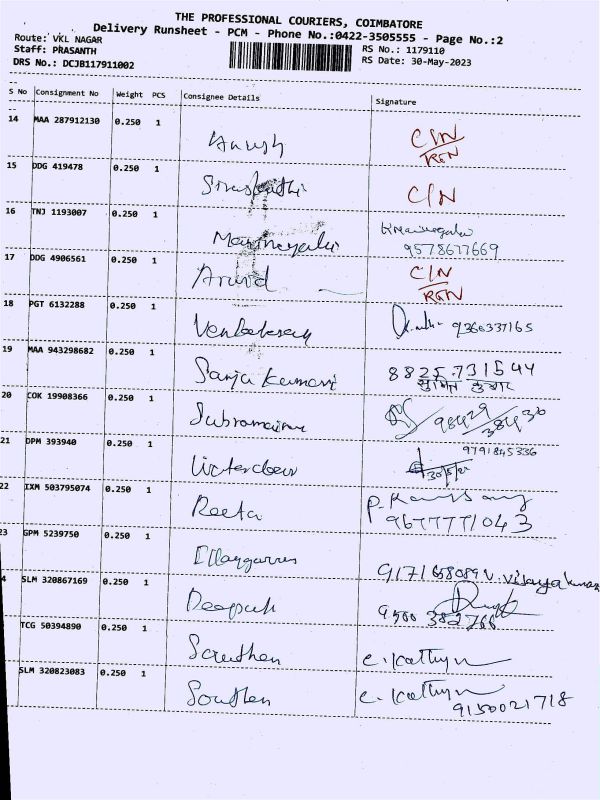 THE PROFESSIONAL COURIERS, COIMBATORE
Delivery Runsheet - PCM - Phone No.:0422-3505555 - Page No.:2
Route: VKL NAGAR
RS No.: 1179110
Staff: PRASANTH
RS Date: 30-May-2023
DRS No.: DCJB117911002
S No Consignment No Weight PCS Consignee Details Signature
14 MAA 287912130 0.250 1 C/N
RGN
15 DDG 419478 0.250 1 C/N
16 TNJ 1193007 0.250 1
9578677669
17 DDG 4906561 0.250 1 Arvind C/N
RGN
18 PGT 6132288 0.250 1 9360337165
19 MAA 943298682 0.250 1 Sanju Kumari 8825 731544
सुमित कुमार
20 COK 19908366 0.250 1 98429
38430
21 DPM 393940 0.250 1 9791845336
22 IXM 503795074 0.250 1 Reeta
9677771043
23 GPM 5239750 0.250 1 9171658089 V. Vijayakumar
4 SLM 320867169 0.250 1 Deepak
9500 382766
TCG 50394890 0.250 1 Southen C. Kathyn
SLM 320823083 0.250 1 Southen C. Kathyn
9150021718